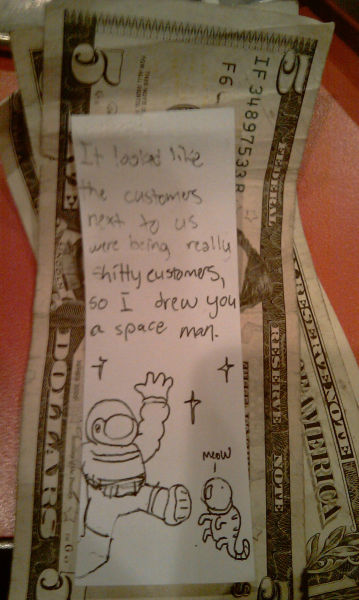 It looked like
the customers
next to us
were being really
shitty customers,
so I drew you
a space man.
meow
IF34897533B
F6
5
FEDERAL RESERVE NOTE
DOLLARS
5
RESERVE NOTE
OF AMERICA
1